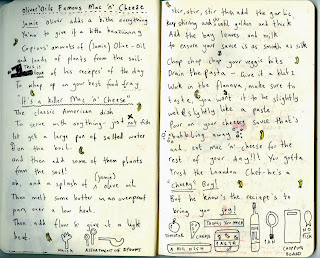 Oliver's Famous Mac 'n' Cheeze
Jamie Oliver adds a bit everything
to give it a bite
Copious amounts of (Jamie) Olive-oil
and loads of plants from the soil.
This is
one of his recipes of the day
To whip up on your best
'It's a killer Mac 'n' Cheese'
The classic American dish
To serve with anything - just not fish
1st get a large pan of salted water
on the boil.
and then add some of them plants
from the soil!
(Jamie)
oh, and a splash of olive oil
Then melt some butter in an ovenproof
pan, over a low heat.
Then add flour & stir it a high
heat.
WHISK
ASSORTMENT OF SPOONS
stir, stir, stir then add the garlic
keep stirring until golden and thick
Add the bay leaves and milk
to ensure your sauce is as smooth as silk
Chop chop chop your veggie bits
Drain the Pasta - Give it a blitz
Work in the flavour, make sure to
taste, you want it to be slightly
wet & slightly like a paste
Pour on your cheesy sauce that's
bubbling away
and eat mac 'n' cheese for the
rest of your day!!! You gotta
Trust the London Chef - he's a
cheeky Boy!
But he knows the recipe's to
bring you joy!
TOMATOE
CHEESE
PASTA
A BIG DISH
PAN
CHOPPING
BOARD
NO
FISH